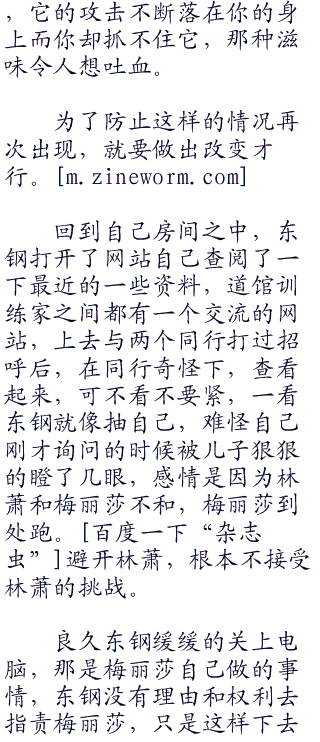 ，它的攻击不断落在你的身
上而你却抓不住它，那种滋
味令人想吐血。
为了防止这样的情况再
次出现，就要做出改变才
行。[m.zineworm.com]
回到自己房间之中，东
钢打开了网站自己查阅了一
下最近的一些资料，道馆训
练家之间都有一个交流的网
站，上去与两个同行打过招
呼后，在同行奇怪下，查看
起来，可不看不要紧，一看
东钢就像抽自己，难怪自己
刚才询问的时候被儿子狠狠
的瞪了几眼，感情是因为林
萧和梅丽莎不和，梅丽莎到
处跑。[百度一下“杂志
虫”]避开林萧，根本不接受
林萧的挑战。
良久东钢缓缓的关上电
脑，那是梅丽莎自己做的事
情，东钢没有理由和权利去
指责梅丽莎，只是这样下去